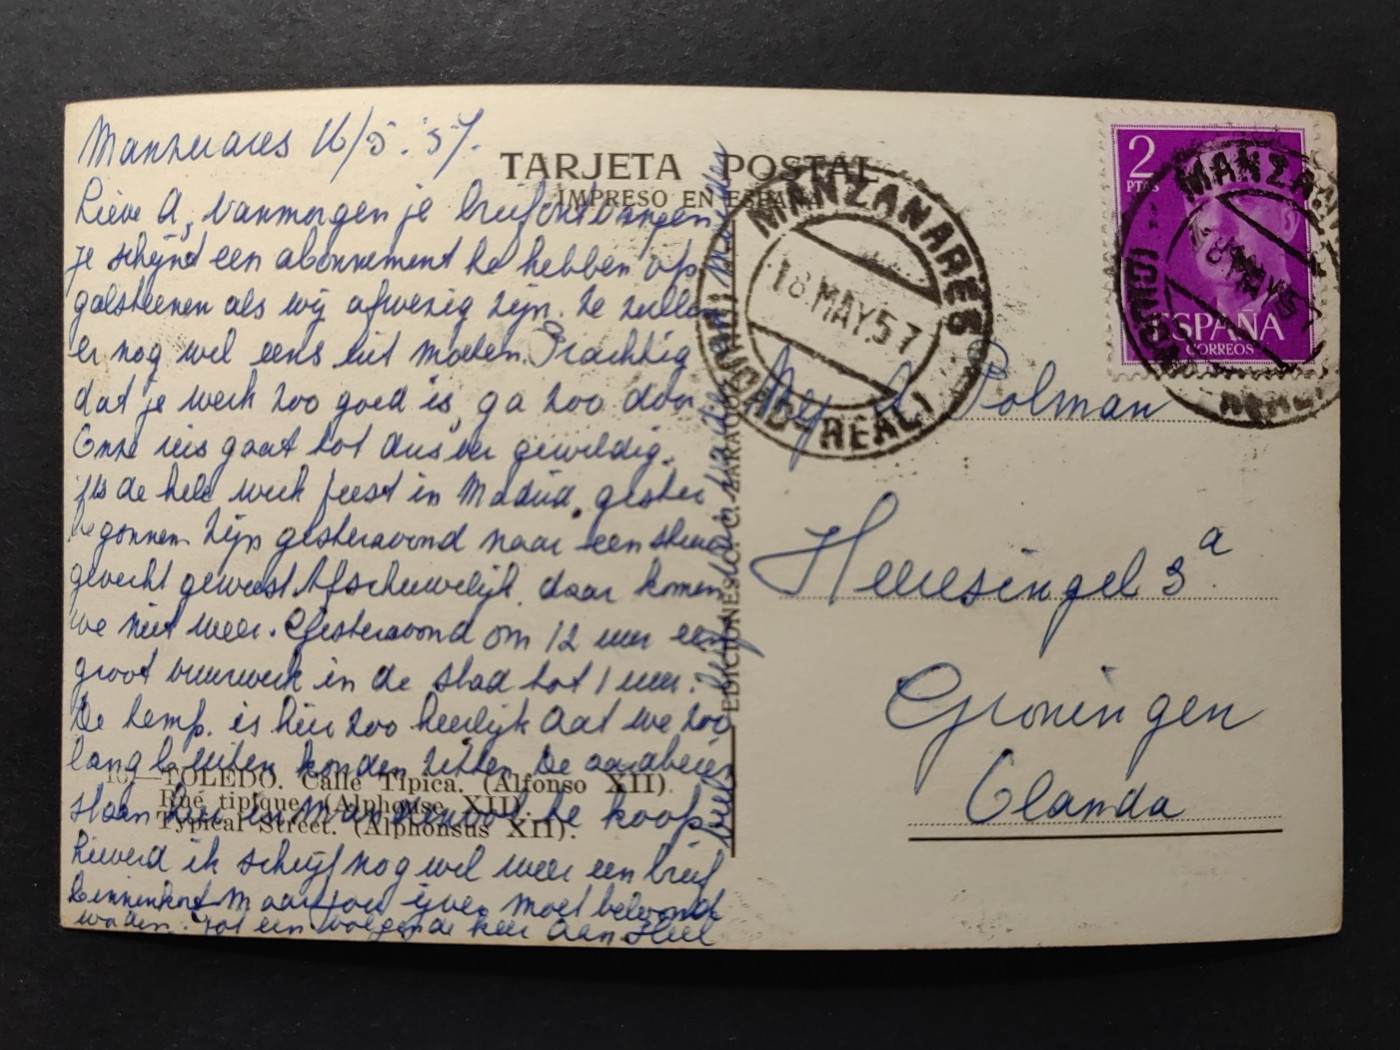 Manzanares 16/5.'57.
TARJETA POSTAL
IMPRESO EN ESPAÑA
Lieve A, vanmorgen je brief ontvangen
je schijnt een abonnement te hebben op
galsteenen als wij afwezig zijn. Ze zullen
er nog wel eens uit moeten. Prachtig
dat je werk zoo goed is, ga zoo door
Onze reis gaat tot dusver geweldig.
't Is de hele week feest in Madrid, gister
begonnen. Zijn gisteravond naar een stieren
gevecht geweest. Afschuwelijk, daar komen
we niet weer. Gisteravond om 12 uur een
groot vuurwerk in de stad tot 1 uur.
De temp. is hier zoo heerlijk dat we zoo
lang buiten konden zitten. De aardbeien
staan hier in te koop
Lieverd ik schrijf nog wel weer een brief
binnenkort maar jou ijver moet beloond
worden. Tot een volgende keer dan. Heel
veel
10.—TOLEDO. Calle Típica. (Alfonso XII).
Rue tipique. (Alphonse XII).
Typical Street. (Alphonsus XII).
EDICIONES ZARAGOZA
MANZANARES
18.MAY.57
(CIUDAD-REAL)
2
PTAS
ESPAÑA
CORREOS
MANZANARES
18 MAY 57
Mej. A. Polman
Heeresingel 3a
Groningen
Olanda